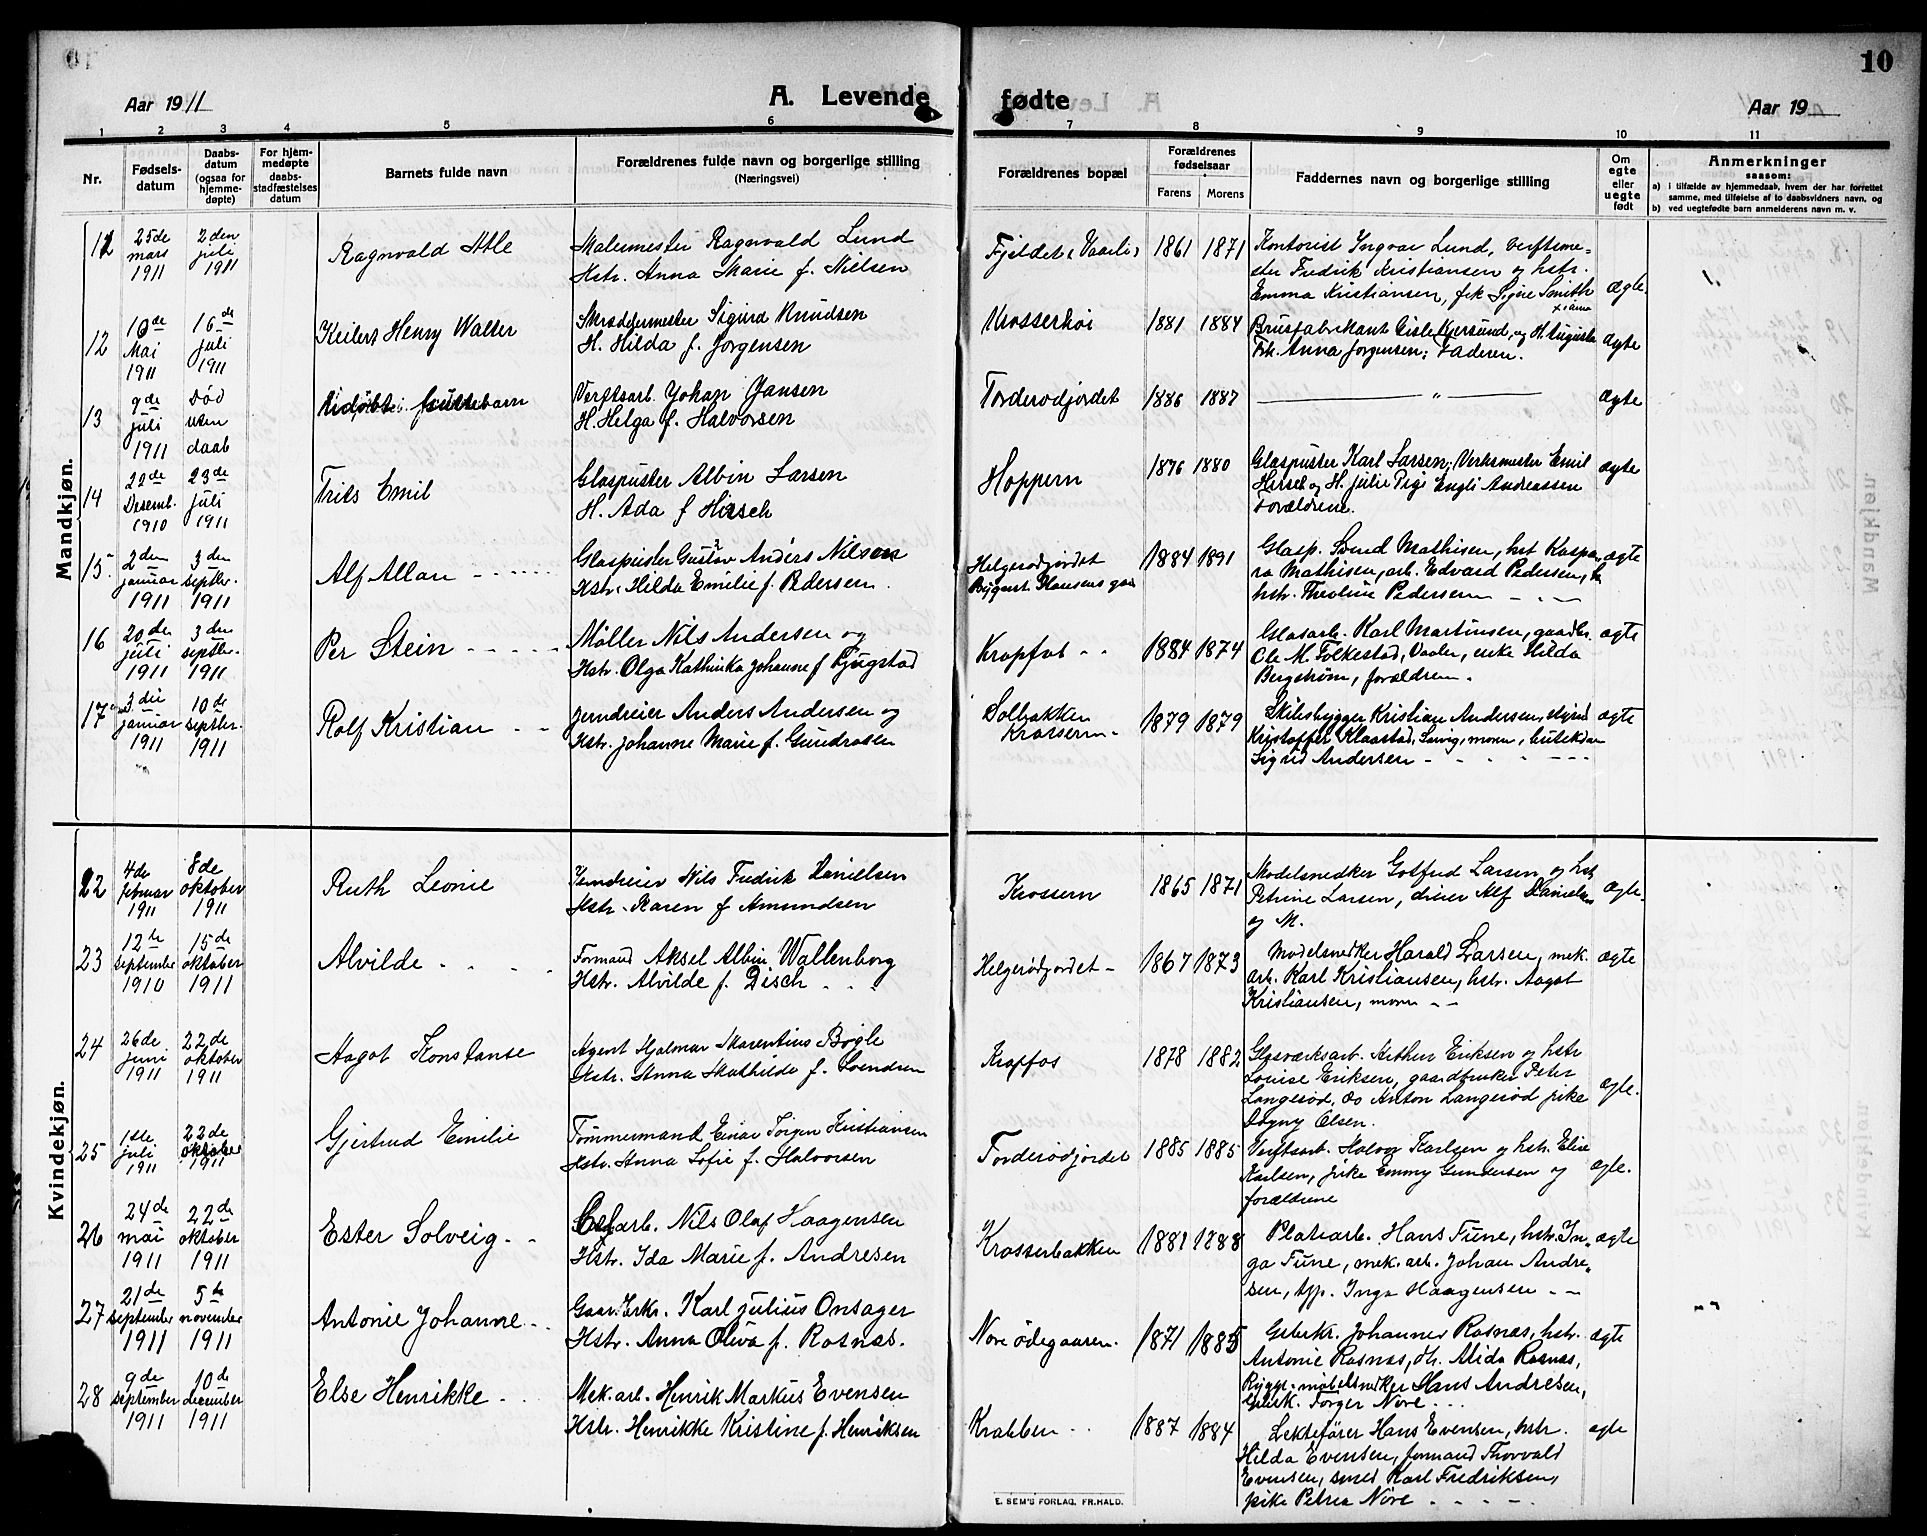 10
Aar 1911
A. Levende fødte
Aar 19
1 2 3 4 5 6 7 8 9 10 11
Nr.
Fødsels-
datum
Daabs-
datum
(ogsaa for
hjemme-
døpte)
For hjem-
medøpte
daabs-
stadfæstelses
datum
Barnets fulde navn
Forældrenes fulde navn og borgerlige stilling
(Næringsvei)
Forældrenes bopæl
Forældrenes
fødselsaar
Farens Morens
Faddernes navn og borgerlige stilling
Om
egte
eller
uegte
født
Anmerkninger
saasom:
a) i tilfælde av hjemmedaab, hvem der har forrettet
samme, med tilføielse af to daabsvidners navn, og
b) ved uegtefødte barn anmelderens navn m. v.
Mandkjøn.
25de mars 1911
2den juli 1911
Ragnvald Atle
Malermester Ragnvald Lund
Hstr. Anna Marie f. Nielsen
Fjeldet, Vaarli,
1861 1871
Kontorist Ingvar Lund, verftsme-
ster Fredrik Kristiansen og hstr.
Emma Kristiansen, frk Signe Smith
ægte.
12
10de Mai 1911
16de juli 1911
Keilert Henry Walter
Skræddermester Sigurd Knudsen
H. Hilda f. Jørgensen
Krosserhøi
1881 1884
Brusfabrikant Gisle Egersund, og H. Auguste
Frk. Anna Jørgensen; Faderen.
ægte
13
9de juli 1911
død uten daab
Verftsarb. Johan Jansen
H. Helga f. Halvorsen
Torderødjordet
1886 1887
— " —
ægte
14
20de Desemb. 1910
23de juli 1911
Frits Emil
Glaspuster Albin Larsen
H. Ada f Hirsch
Hoppern
1876 1880
Glaspuster Karl Larsen; Verksmester Emil
Hirsch og H. Julie Pige Engli Andreassen
Forældrene.
ægte
15
2den januar 1911
3die septbr. 1911
Alf Allan
Glaspuster Gustav Anders Nilsen
Hstr. Hilda Emilie f. Pedersen
Helgerødjordet
Bygm. Hansens
1884 1891
Glasp. Svend Mathisen, hst Kaspa
ra Mathisen, arb. Edvard Pedersen,
hstr. Theoline Pedersen
ægte
16
20de juli 1911
3die septbr. 1911
Per Stein
Møller Nils Andersen og
Hstr. Olga Kathinka Johanne f Ljugstad
Krapfos
1884 1874
Glasarb. Karl Martinsen, gaardbr.
Ole M. Folkestad, Vaaler, enke Hilda
Bergstrøm, forældrene.
ægte
17
3die januar 1911
10de septbr. 1911
Rolf Kristian
Jerndreier Anders Andersen og
Hstr. Johanne Marie f. Gundrosen
Solbakken
Krossern
1879 1879
Skibsbygger Kristian Andersen,
Kristoffer Klaastad, moren, butikdam
Sigrid Andersen
ægte
Kvindekjøn.
22
4de februar 1911
8de oktober 1911
Ruth Leonie
Jerndreier Nils Fredrik Danielsen
Hstr. Karen f Amundsen
Krossern
1865 1871
Modelsnedker Gotfred Larsen og hst
Petrine Larsen, dreier Alf Danielsen
og M.
ægte.
23
12te september 1910
15de oktober 1911
Alvilde
Formand Aksel Albin Wallenborg
Hstr. Alvilde f. Disch
Helgerødjordet
1867 1873
Modelsnedker Harald Larsen, mek.
arb. Karl Kristiansen, hstr. Aagot
Kristiansen, moren
ægte
24
26de juni 1911
22de oktober 1911
Aagot Konstanse
Agent Hjalmar Marentius Bøgle
Hstr. Anna Mathilde f. Svendsen
Krapfos
1878 1882
Glasværksarb. Arthur Eriksen og hstr
Louise Eriksen, gaardbruker Peter
Langerød, do Anton Langerød pike
Dagny Olsen.
ægte.
25
1ste juli 1911
22de oktober 1911
Gjertrud Emilie
Tømmermand Einar Jørgen Kristiansen
Hstr. Anna Sofie f. Halvorsen
Torderødjordet
1885 1885
Verftsarb. Halvor Karlsen og hstr. Elise
Karlsen, pike Emmy Gundersen og
forældrene
ægte.
26
24de mai 1911
22de oktober 1911
Ester Solveig
arb. Nils Olaf Haagensen
Hstr. Ida Marie f. Andresen
Krosserbakken
1881 1888
Platearb. Hans Fune, hstr. In-
ga Fune, mek. arb. Johan Andre-
sen, Inga Haagensen
ægte
27
21de september 1911
5te november 1911
Antonie Johanne
Gaardbrkr. Karl Julius Onsager
Hstr. Anna Oliva f. Rosnæs.
Nore ødegaarden.
1871 1885
Gbrkr. Johannes Rosnæs, hstr.
Antonie Rosnæs, dr. Alida Rosnæs,
Rygge. møbelsnedker Hans Andresen,
Torger Nore
ægte
28
9de september 1911
10de december 1911
Else Henrikke
Mek. arb. Henrik Markus Evensen
Hstr. Henrikke Kristine f. Henriksen
Krabben
1887 1884
Lektefører Hans Evensen, hstr.
Hilda Evensen, formand Thorvald
Evensen, smed Karl Fredriksen,
pike Petrea Nore
ægte
E. SEM'S FORLAG, FR.HALD.